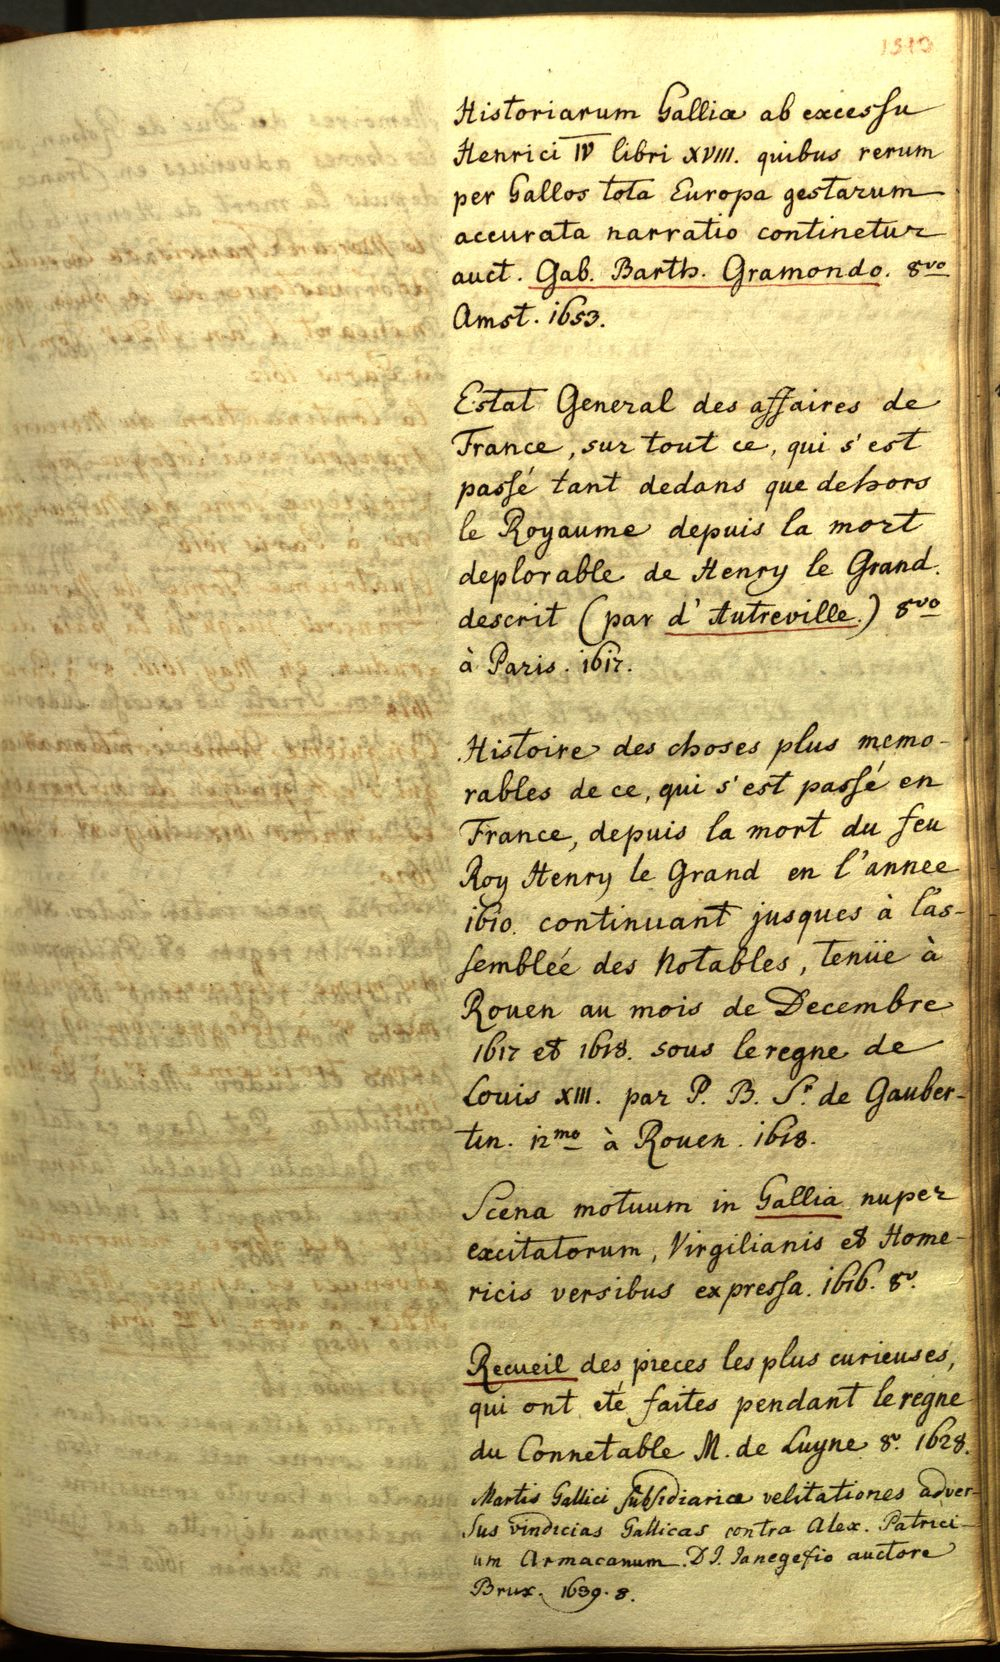 1510
Historiarum Galliæ ab excessu
Henrici IV libri XVIII. quibus rerum
per Gallos tota Europa gestarum
accurata narratio continetur
auct. Gab. Barth. Gramondo. 8vo
Amst. 1653.
Estat General des affaires de
France, sur tout ce, qui s'est
passé tant dedans que dehors
le Royaume depuis la mort
deplorable de Henry le Grand.
descrit (par d'Autreville.) 8vo
à Paris. 1617.
Histoire des choses plus memo-
rables de ce, qui s'est passé en
France, depuis la mort du feu
Roy Henry le Grand en l'annee
1610. continuant jusques à l'as-
sembleé des Notables, tenüe à
Rouen au mois de Decembre
1617 et 1618. sous le regne de
Louis XIII. par P. B. Sr. de Gauber-
tin. 12mo à Rouen. 1618.
Scena motuum in Gallia nuper
excitatorum, Virgilianis et Home-
ricis versibus expressa. 1616. 8v.
Recueil des pieces les plus curieuses,
qui ont eté faites pendant le regne
du Connetable M. de Luyne 8v. 1628.
Martis Gallici subsidiariæ velitationes adver-
sus vindicias Gallicas contra Alex. Patrici-
um Armacanum. D. J. Janegesio auctore
Brux. 1639. 8.